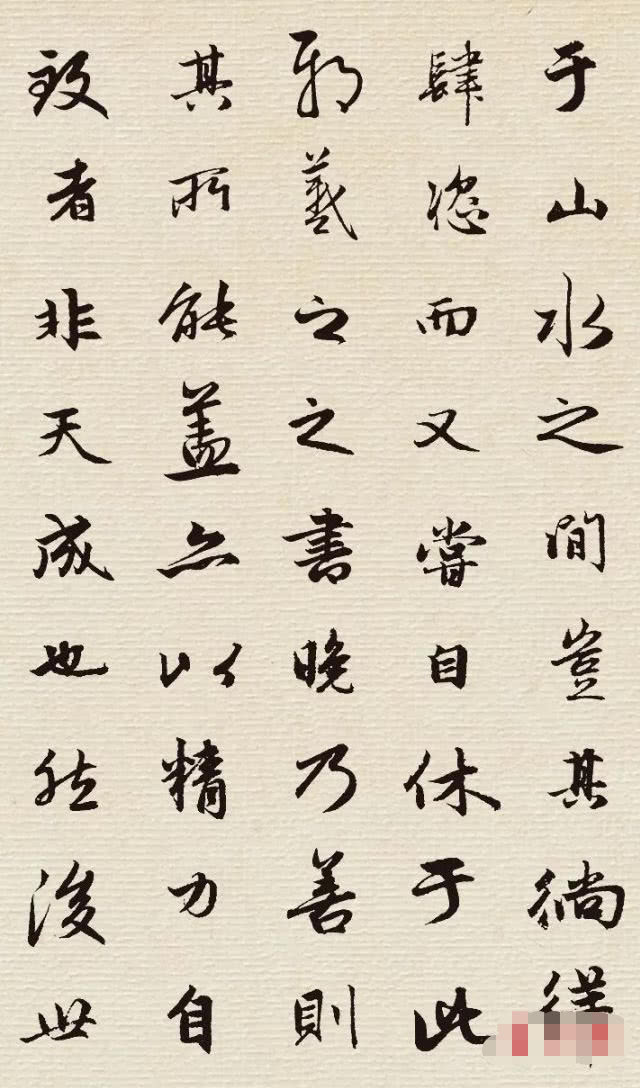 于山水之間豈其徜徉
肆恣而又嘗自休于此
邪羲之之書晚乃善則
其所能蓋亦以精力自
致者非天成也然後世